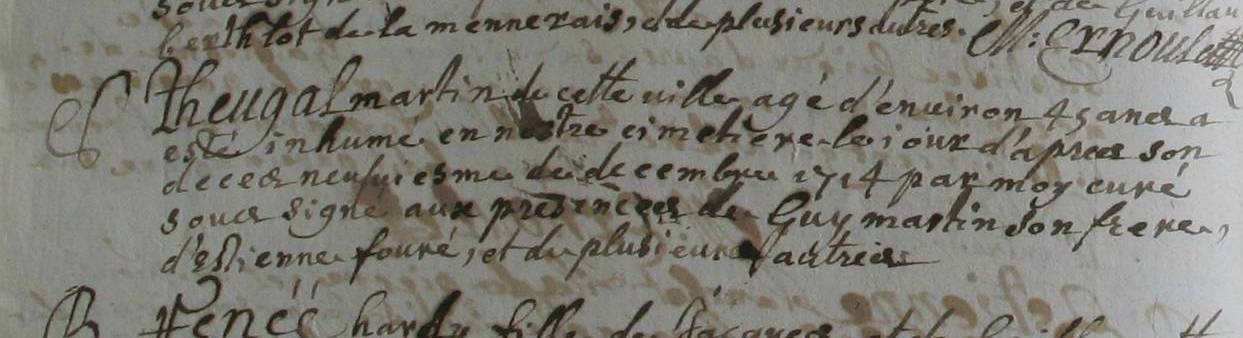 berthlot de la mennerais, et de plusieurs autres. M: Ernoul
S Theugal martin de cette ville agé d'enuiron 45 ans a
esté inhumé en nostre cimetiere le iour d'apres son
deces neufuiesme de decembre 1714 par moy curé
sous signé aux presences de Guy martin son frere,
d'estienne fouré, et de plusieurs autres
Renéé hardy fille de Jacques et de